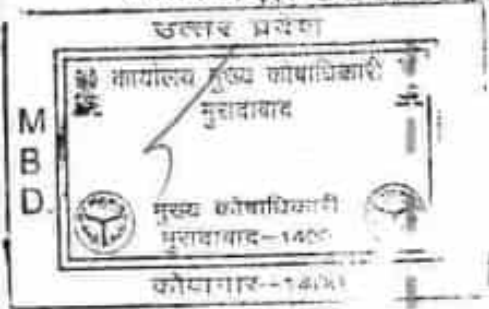 उत्तर प्रदेश
कार्यालय मुख्य कोषाधिकारी
मुरादाबाद
M
B
D.
मुख्य कोषाधिकारी
मुरादाबाद-1400
कोषागार--1400